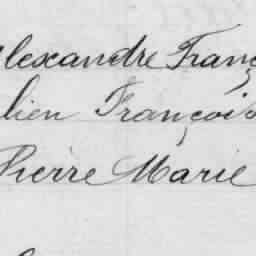 lexandre Franç
lien François
Pierre Marie